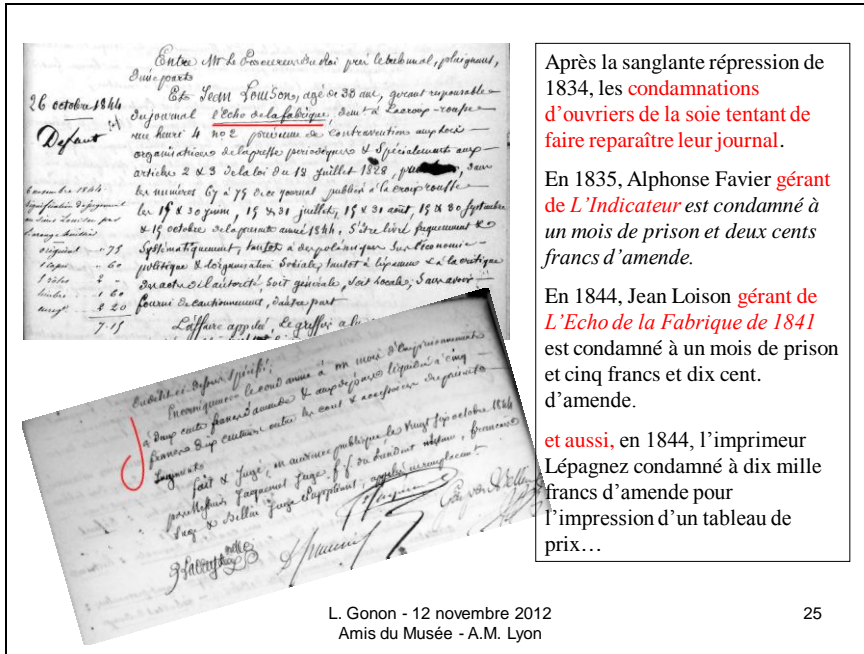 Entre Mr Le Procureur du Roi près le tribunal, plaignant,
d'une part
Et Jean Louison, agé de 33 ans, gérant responsable
du journal l'Echo de la fabrique, demt à Lacroix-rousse
rue henri 4 no 2, prévenu de contraventions aux lois
organisatrices de la presse périodiques & Spécialement aux
articles 2 & 3 de la loi du 18 Juillet 1828, dans
les numéros 67 à 75 de ce journal publié à la croix rousse
les 15 & 30 juin, 15 & 31 juillet, 15 & 31 août, 15 & 30 Septembre
& 15 octobre de la présente année 1844, S'être livré fréquemment &
Systématiquement, tantôt à des polémiques Sur l'économie
politique & l'organisation Sociale, tantôt à l'examen & à la critique
des actes de l'autorité, Soit générale, Soit locale, Sans avoir
fourni de cautionnement, d'autre part
L'affaire appelée, Le greffier a lu
26 octobre 1844
Defaut
6 novembre 1844
Signification du jugement
original 75
60
2
1 60
2 20
7.15
En conséquence le condamne à un mois d'emprisonnement
à deux cents francs d'amende & aux dépens liquidés à cinq
francs dix centimes outre les coût & accessoires du présent
Jugement
fait & Jugé, en audience publique, le Vingt Six octobre 1844
Après la sanglante répression de
1834, les condamnations
d'ouvriers de la soie tentant de
faire reparaître leur journal.
En 1835, Alphonse Favier gérant
de L'Indicateur est condamné à
un mois de prison et deux cents
francs d'amende.
En 1844, Jean Loison gérant de
L'Echo de la Fabrique de 1841
est condamné à un mois de prison
et cinq francs et dix cent.
d'amende.
et aussi, en 1844, l'imprimeur
Lépagnez condamné à dix mille
francs d'amende pour
l'impression d'un tableau de
prix…
L. Gonon - 12 novembre 2012
Amis du Musée - A.M. Lyon
25